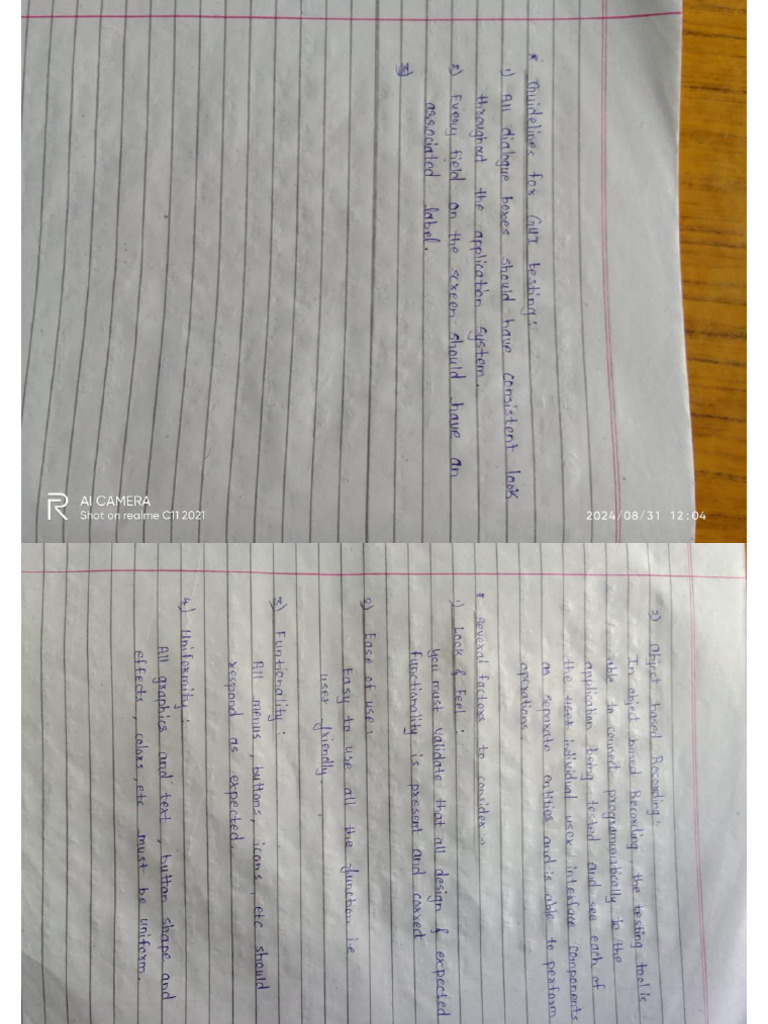 * Guidelines for GUI testing:
1) All dialogue boxes should have consistent look
throughout the application system.
2) Every field on the screen should have an
associated label.
3)
AI CAMERA
Shot on realme C11 2021
2024/08/31 12:04
2) Object based Recording:
In object based Recording, the testing tool is
able to connect programmatically to the
application being tested and see each of
the user individual user interface components
as separate entities and is able to perform
operations.
* Several factors to consider :-
1) Look & Feel :
You must validate that all design & expected
functionality is present and correct
2) Ease of use :
Easy to use all the function ie
user friendly.
3) Funtionality :
All menus, buttons, icons, etc should
respond as expected.
4) Uniformity :
All graphics and text, button shape and
effects, colors, etc must be uniform.